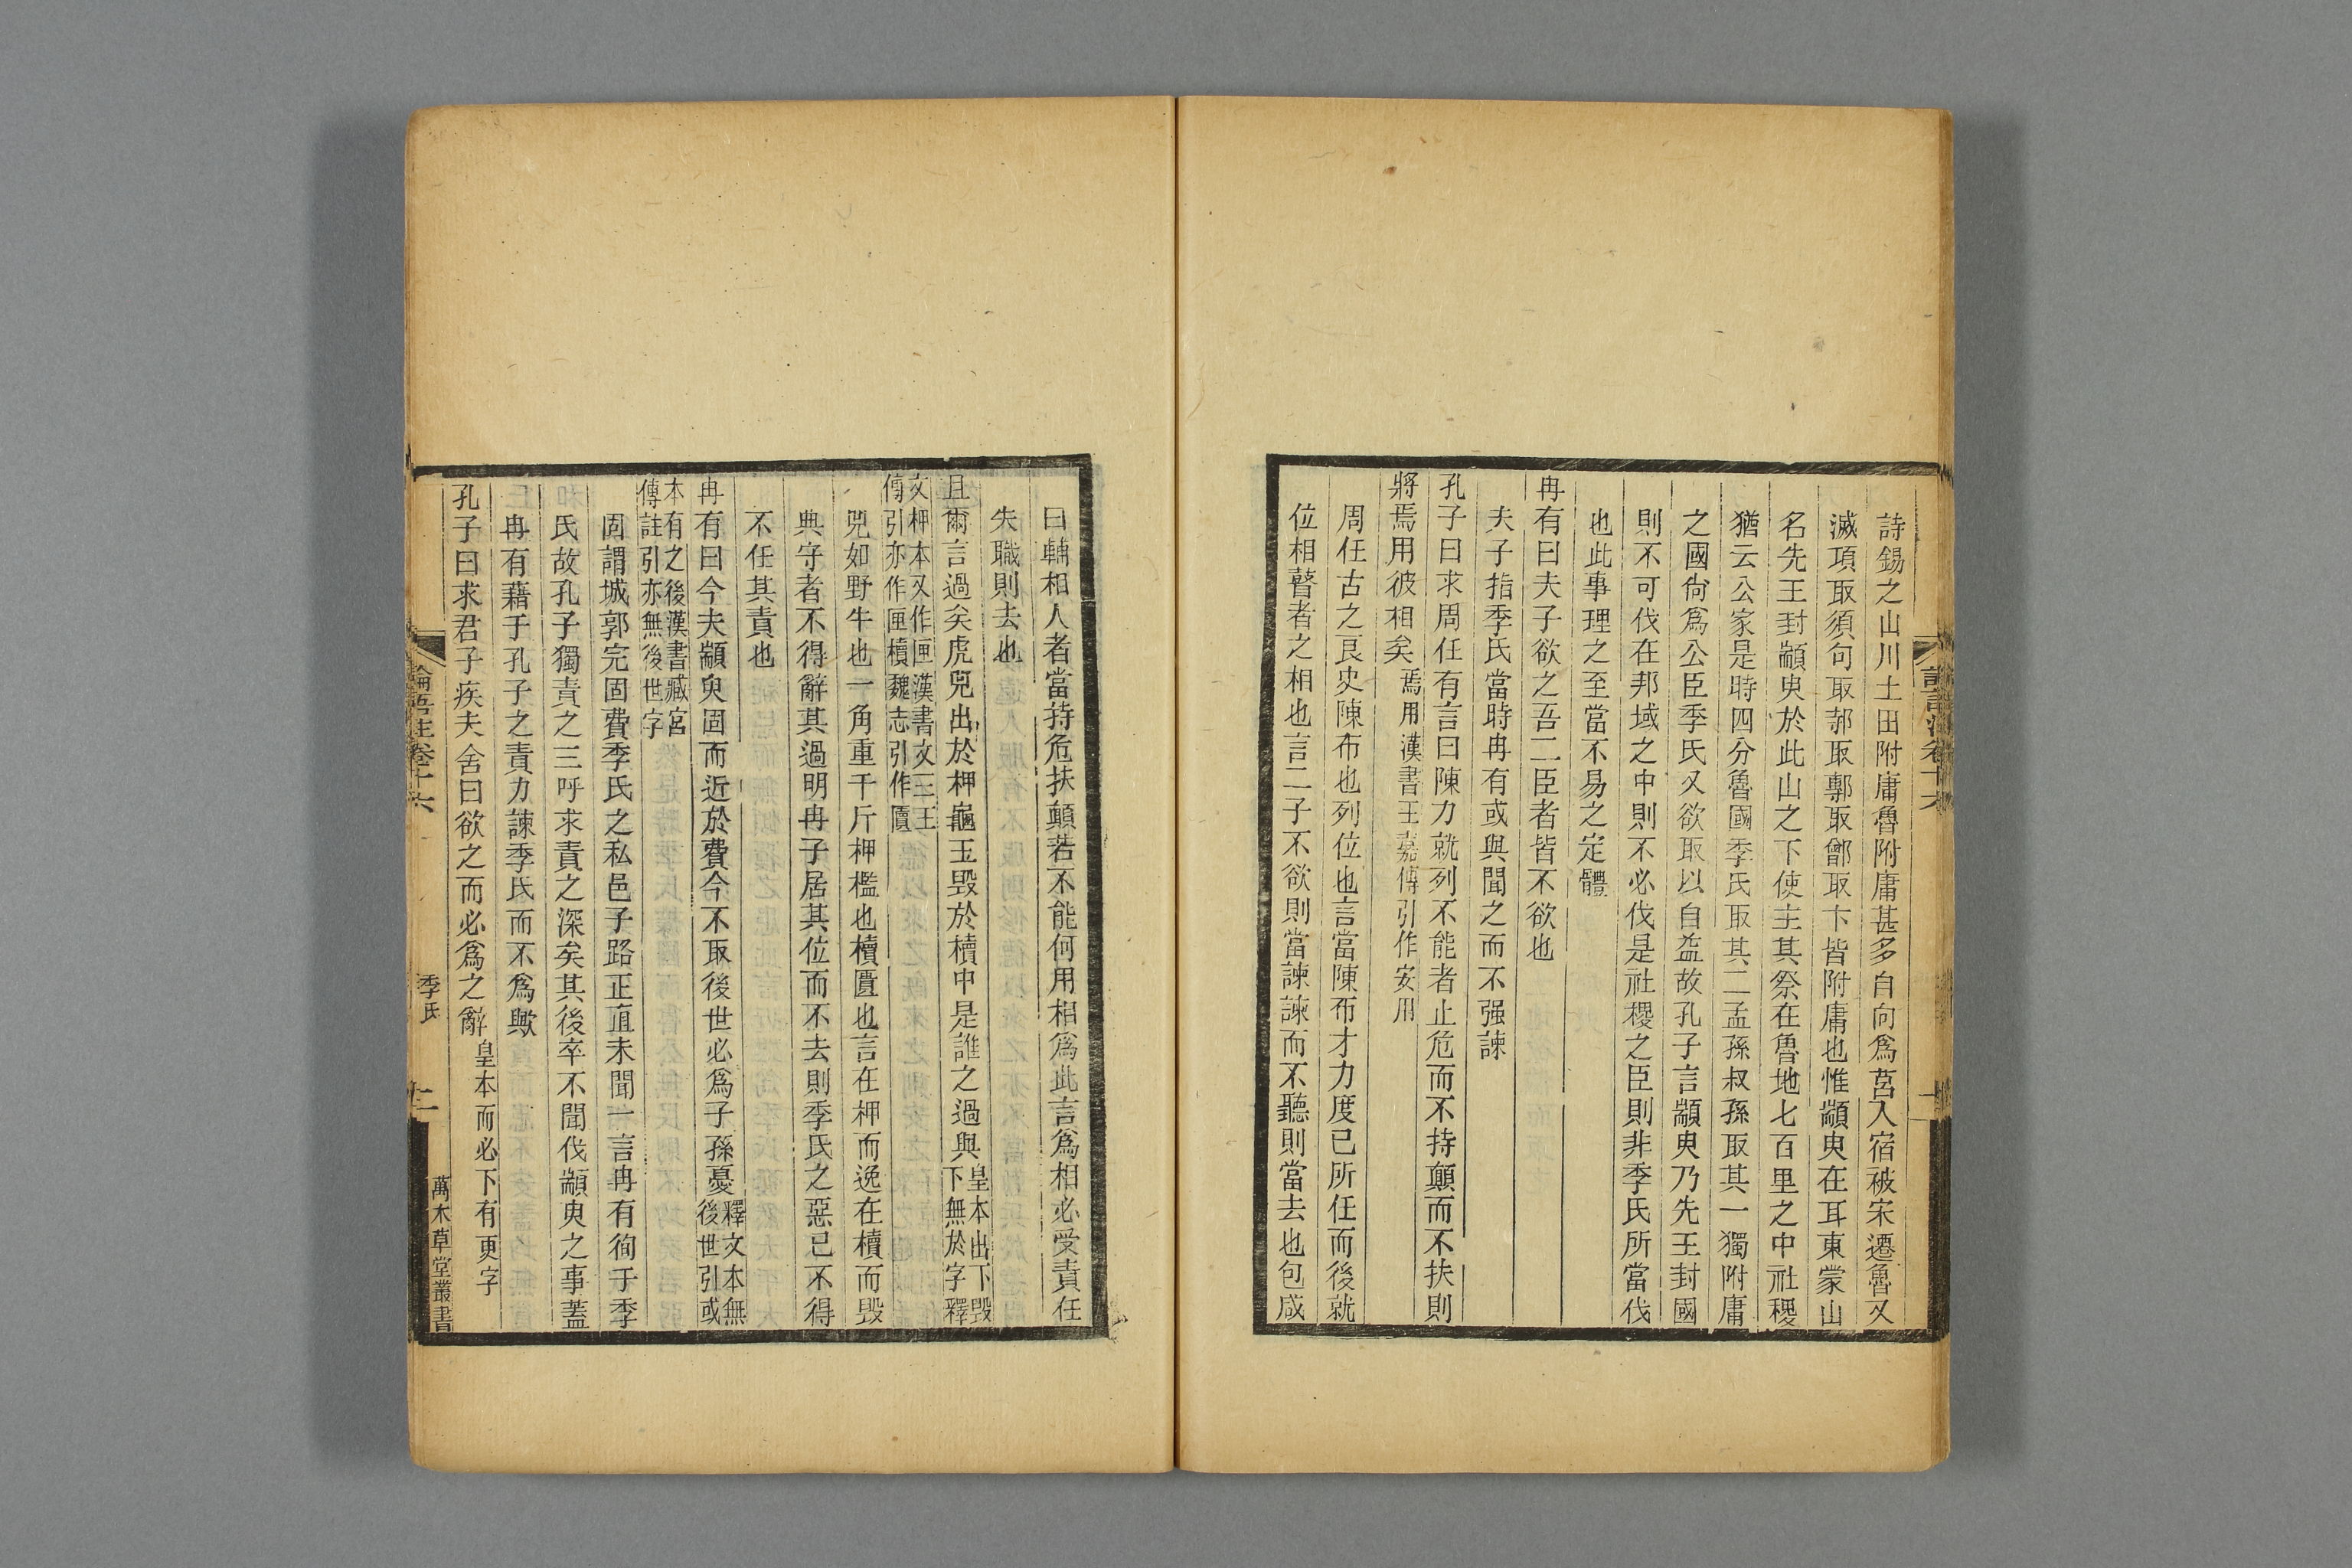 詩錫之山川土田附庸魯附庸甚多自向爲莒入宿被宋遷魯又
滅項取須句取邿取鄟取鄫取卞皆附庸也惟顓臾在耳東蒙山
名先王封顓臾於此山之下使主其祭在魯地七百里之中社稷
猶云公家是時四分魯國季氏取其二孟孫叔孫取其一獨附庸
之國尙爲公臣季氏又欲取以自益故孔子言顓臾乃先王封國
則不可伐在邦域之中則不必伐是社稷之臣則非季氏所當伐
也此事理之至當不易之定體
冉有曰夫子欲之吾二臣者皆不欲也
夫子指季氏當時冉有或與聞之而不强諫
孔子曰求周任有言曰陳力就列不能者止危而不持顛而不扶則
將焉用彼相矣焉用漢書王嘉傳引作安用
周任古之良史陳布也列位也言當陳布才力度己所任而後就
位相瞽者之相也言二子不欲則當諫諫而不聽則當去也包咸
曰輔相人者當持危扶顛若不能何用相爲此言爲相必受責任
失職則去也
且爾言過矣虎兕出於柙龜玉毀於櫝中是誰之過與皇本出下毀
下無於字釋
文柙本又作匣漢書文三王
傳引亦作匣櫝魏志引作匵
兕如野牛也一角重千斤柙檻也櫝匱也言在柙而逸在櫝而毀
典守者不得辭其過明冉子居其位而不去則季氏之惡己不得
不任其責也
冉有曰今夫顓臾固而近於費今不取後世必爲子孫憂釋文本無
後世引或
本有之後漢書臧宮
傳註引亦無後世字
固謂城郭完固費季氏之私邑子路正直未聞一言冉有徇于季
氏故孔子獨責之三呼求責之深矣其後卒不聞伐顓臾之事蓋
冉有藉于孔子之責力諫季氏而不爲歟
孔子曰求君子疾夫舍曰欲之而必爲之辭皇本而必下有更字
論語注卷十六
季氏
二
萬木草堂叢書